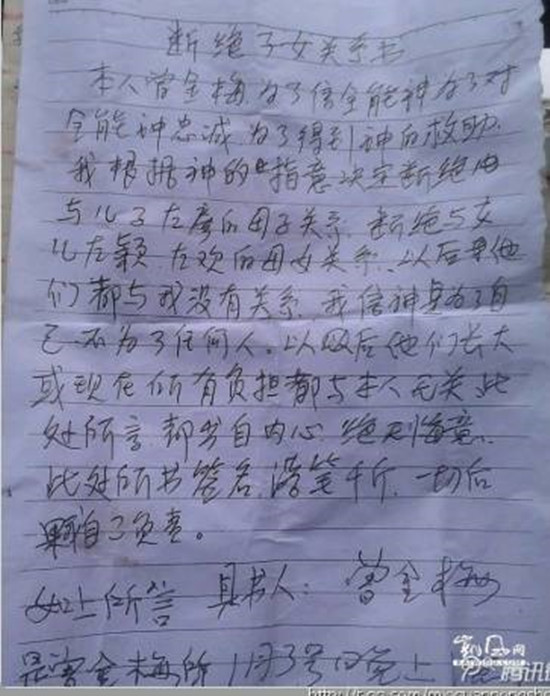 断绝子女关系书
本人曾金梅为了信全能神为了对
全能神忠诚.为了得到神的救助.
我根据神的指意决定断绝
与儿子左彦的母子关系.断绝与女
儿左颖.左欢的母女关系.以后他
们都与我没有关系.我信神是为了自
己不为了任何人。以后他们长大
或现在所有负担都与本人无关此
处所言都出自内心.绝无悔意.
此处所书签名.落笔千斤.一切后
果自己负责。
如上所言 具书人: 曾金梅
是曾金梅所 1月3号日晚上